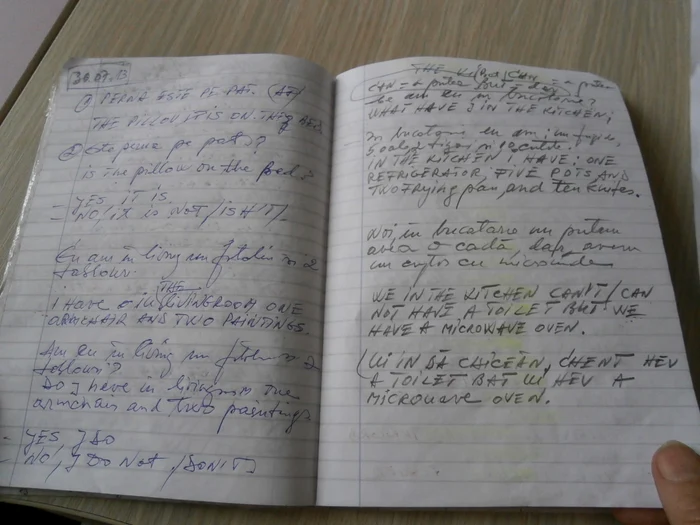 30.07.13
① PERNA ESTE PE PAT. (AF)
THE PILLOW IT IS ON THE BED
② Este perna pe pat?
is the pillow on the bed?
- YES, IT IS
- NO/it is NOT/ISN'T/.
Eu am în living un fotoliu și 2
tablouri.
THE
I HAVE IN LIVINGROOM ONE
ARMCHAIR AND TWO PAINTINGS.
Am eu în living un fotoliu și 2
tablouri?
Do I have in livingroom one
armchair and two paintings
- YES I DO
- NO/I DO NOT/DON'T
THE
CAN = a putea BUT = dar
Ce am eu în bucătărie?
WHAT HAVE I IN THE KITCHEN;
În bucătărie eu am: un frigider,
5 oale, 2 tigăi și 10 cuțite.
IN THE KITCHEN I HAVE; ONE
REFRIGERATOR, FIVE POTS AND
TWO frying pan, and ten knives.
Noi, în bucătărie nu putem
avea o cadă, dar, avem
un cuptor cu microunde
WE IN THE KITCHEN CAN'T/CAN
NOT HAVE A TOILET BUT WE
HAVE A MICROWAVE OVEN.
(UI IN DĂ CHICEĂN, CHENT HEV
A TOILET BAT UI HEV A
MICROWAVE OVEN.